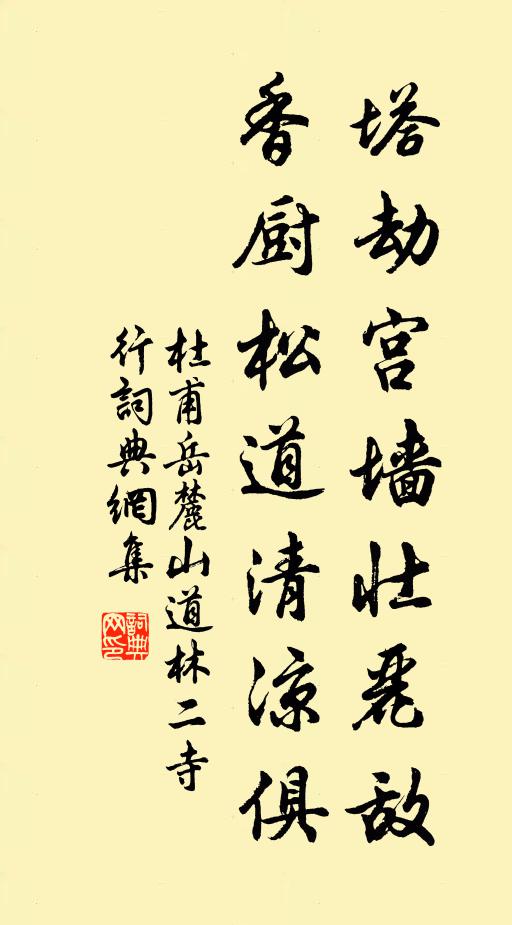 塔劫宫墙壮丽敌
香厨松道清凉俱
杜甫岳麓山道林二寺
行詞典網集
詞典网印